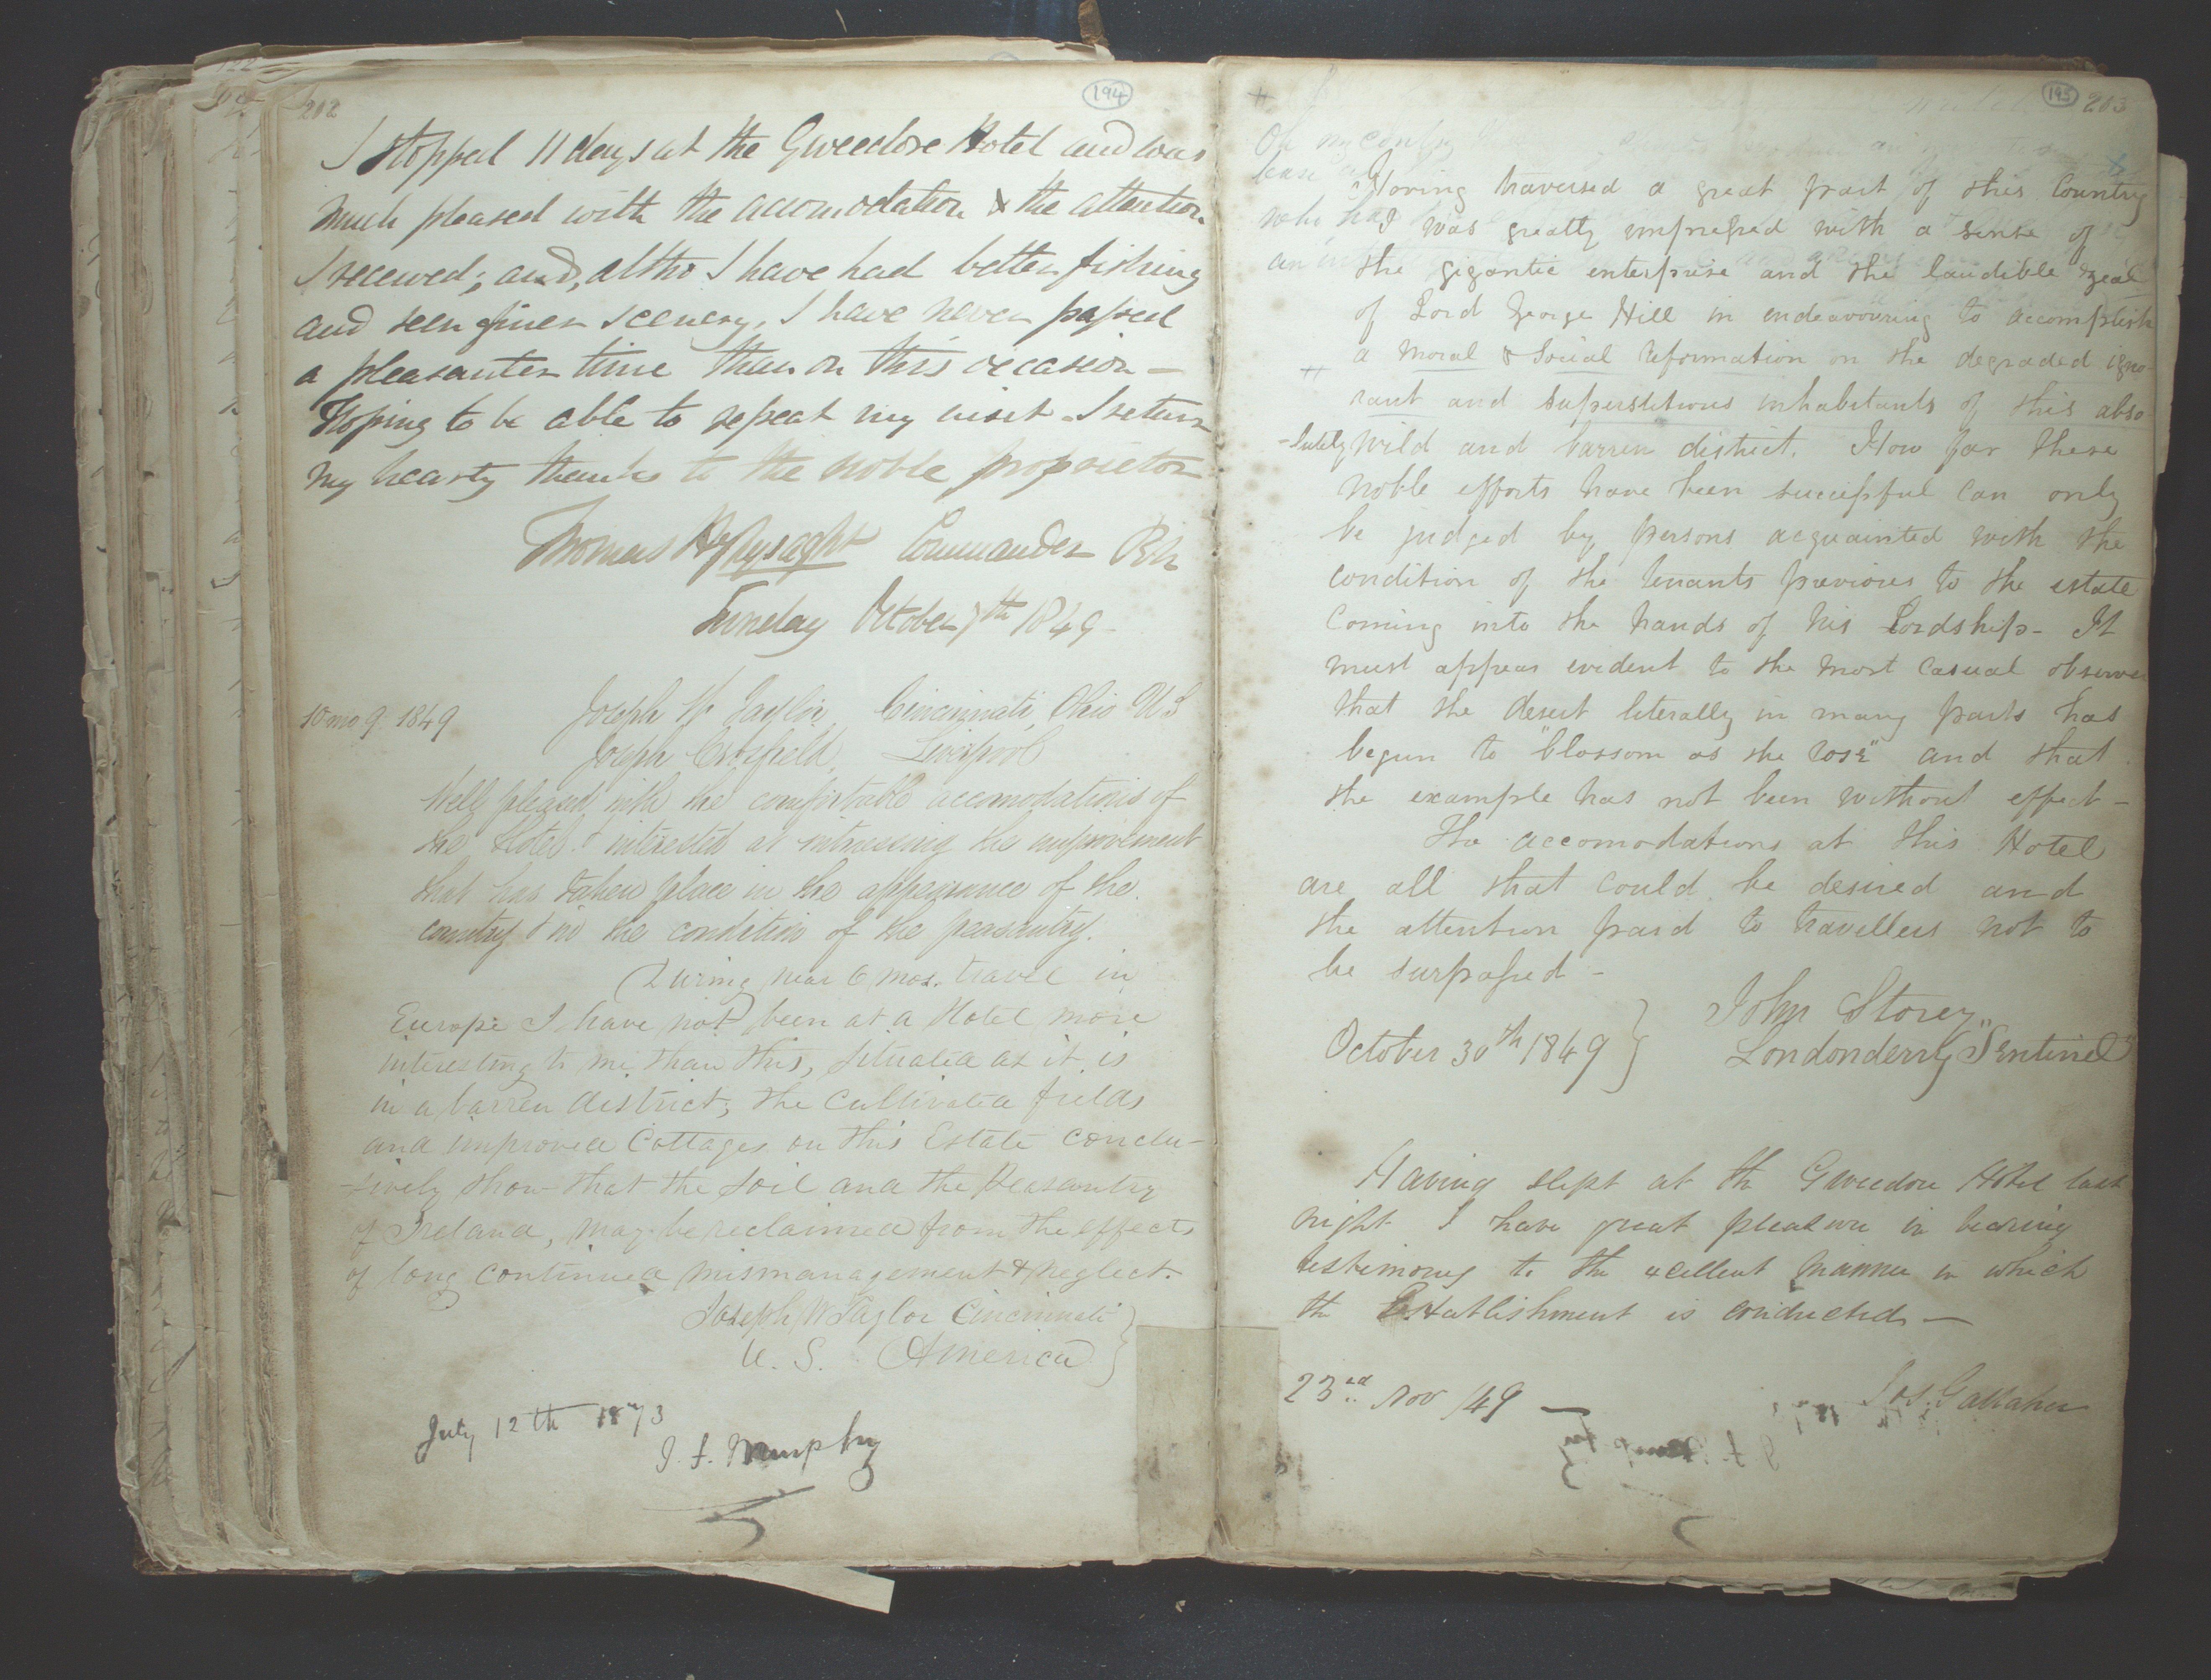 202
194
I stopped 11 days at the Gweedore Hotel and was
much pleased with the accomodation & the attention
I received; and, altho I have had better fishing
and seen finer scenery, I have never passed
a pleasanter time than on this occasion —
Hoping to be able to repeat my visit I return
my hearty thanks to the noble proprietor
Thomas Commander RN
Sunday October 7th 1849
10 mo 9. 1849
Joseph W Taylor, Cincinnati, Ohio US
Joseph Crosfield, Liverpool
Well pleased with the comfortable accomodations of
the Hotel & interested at witnessing the improvement
that has taken place in the appearance of the
country & in the condition of the peasantry.
During near 6 mos. travel in
Europe I have not been at a Hotel more
interesting to me than this, situated as it is
in a barren district, the cultivated fields
and improved Cottages on this Estate conclu-
-sively show that the soil and the Peasantry
of Ireland, may be reclaimed from the effects
of long continued mismanagement & neglect.
Joseph W Taylor Cincinnati
U. S. America
July 12th 1873
J. F. Murphy
195
203
Oh my contry
Having traversed a great part of this Country
I was greatly impressed with a sense of
the gigantic enterprise and the laudible zeal
of Lord George Hill in endeavouring to accomplish
a Moral & Social reformation on the degraded igno-
rant and superstitious inhabitants of this abso-
-lutely wild and barren district. How far these
noble efforts have been successful can only
be judged by persons acquainted with the
condition of the tenants previous to the estate
coming into the hands of his Lordship - It
must appear evident to the most casual observer
that the desert literally in many parts has
begun to "blossom as the rose" and that
the example has not been without effect -
The accomodations at this Hotel
are all that could be desired and
the attention paid to travellers not to
be surpassed -
John Storey
October 30th 1849 } Londonderry "Sentinel"
Having slept at the Gweedore Hotel last
night I have great pleasure in bearing
testimony to the excellent manner in which
the Establishment is conducted —
23rd Nov /49 — Jos. Gallaher